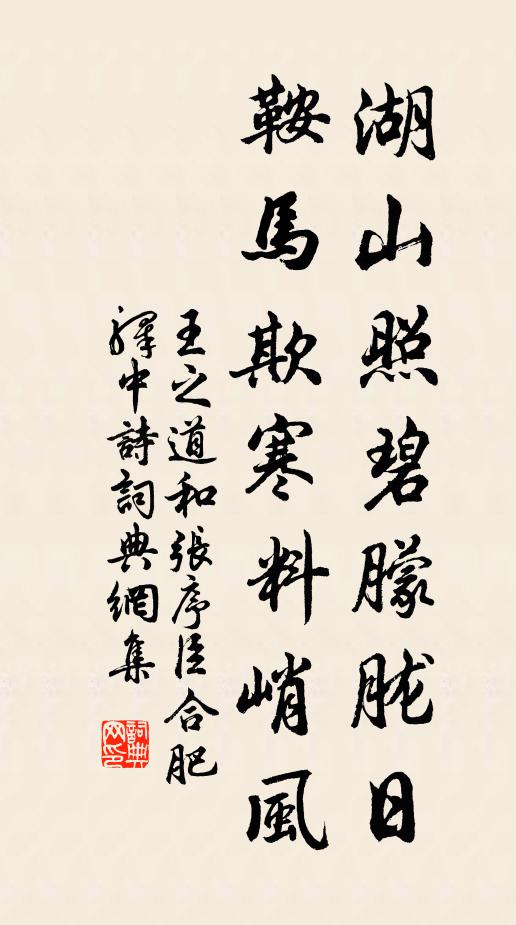 湖山照碧朦胧日
鞍馬欺寒料峭風
王之道和張序臣合肥
驛中詩詞典網集
詞典
网印